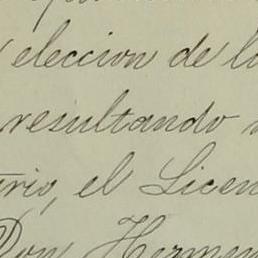 eleccion de l
resultando
trio, el Licen
Don Hermen